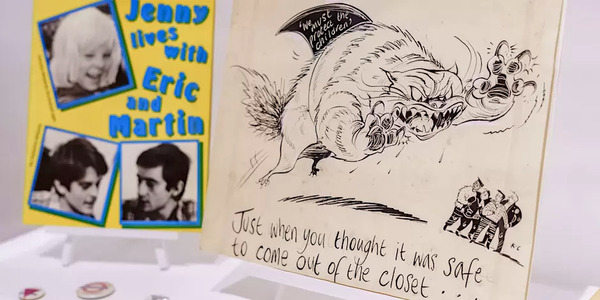 Jenny
lives
with
Eric
and
Martin
'we must
protect the
children'
Just when you thought it was safe
to come out of the closet . . . .
K C